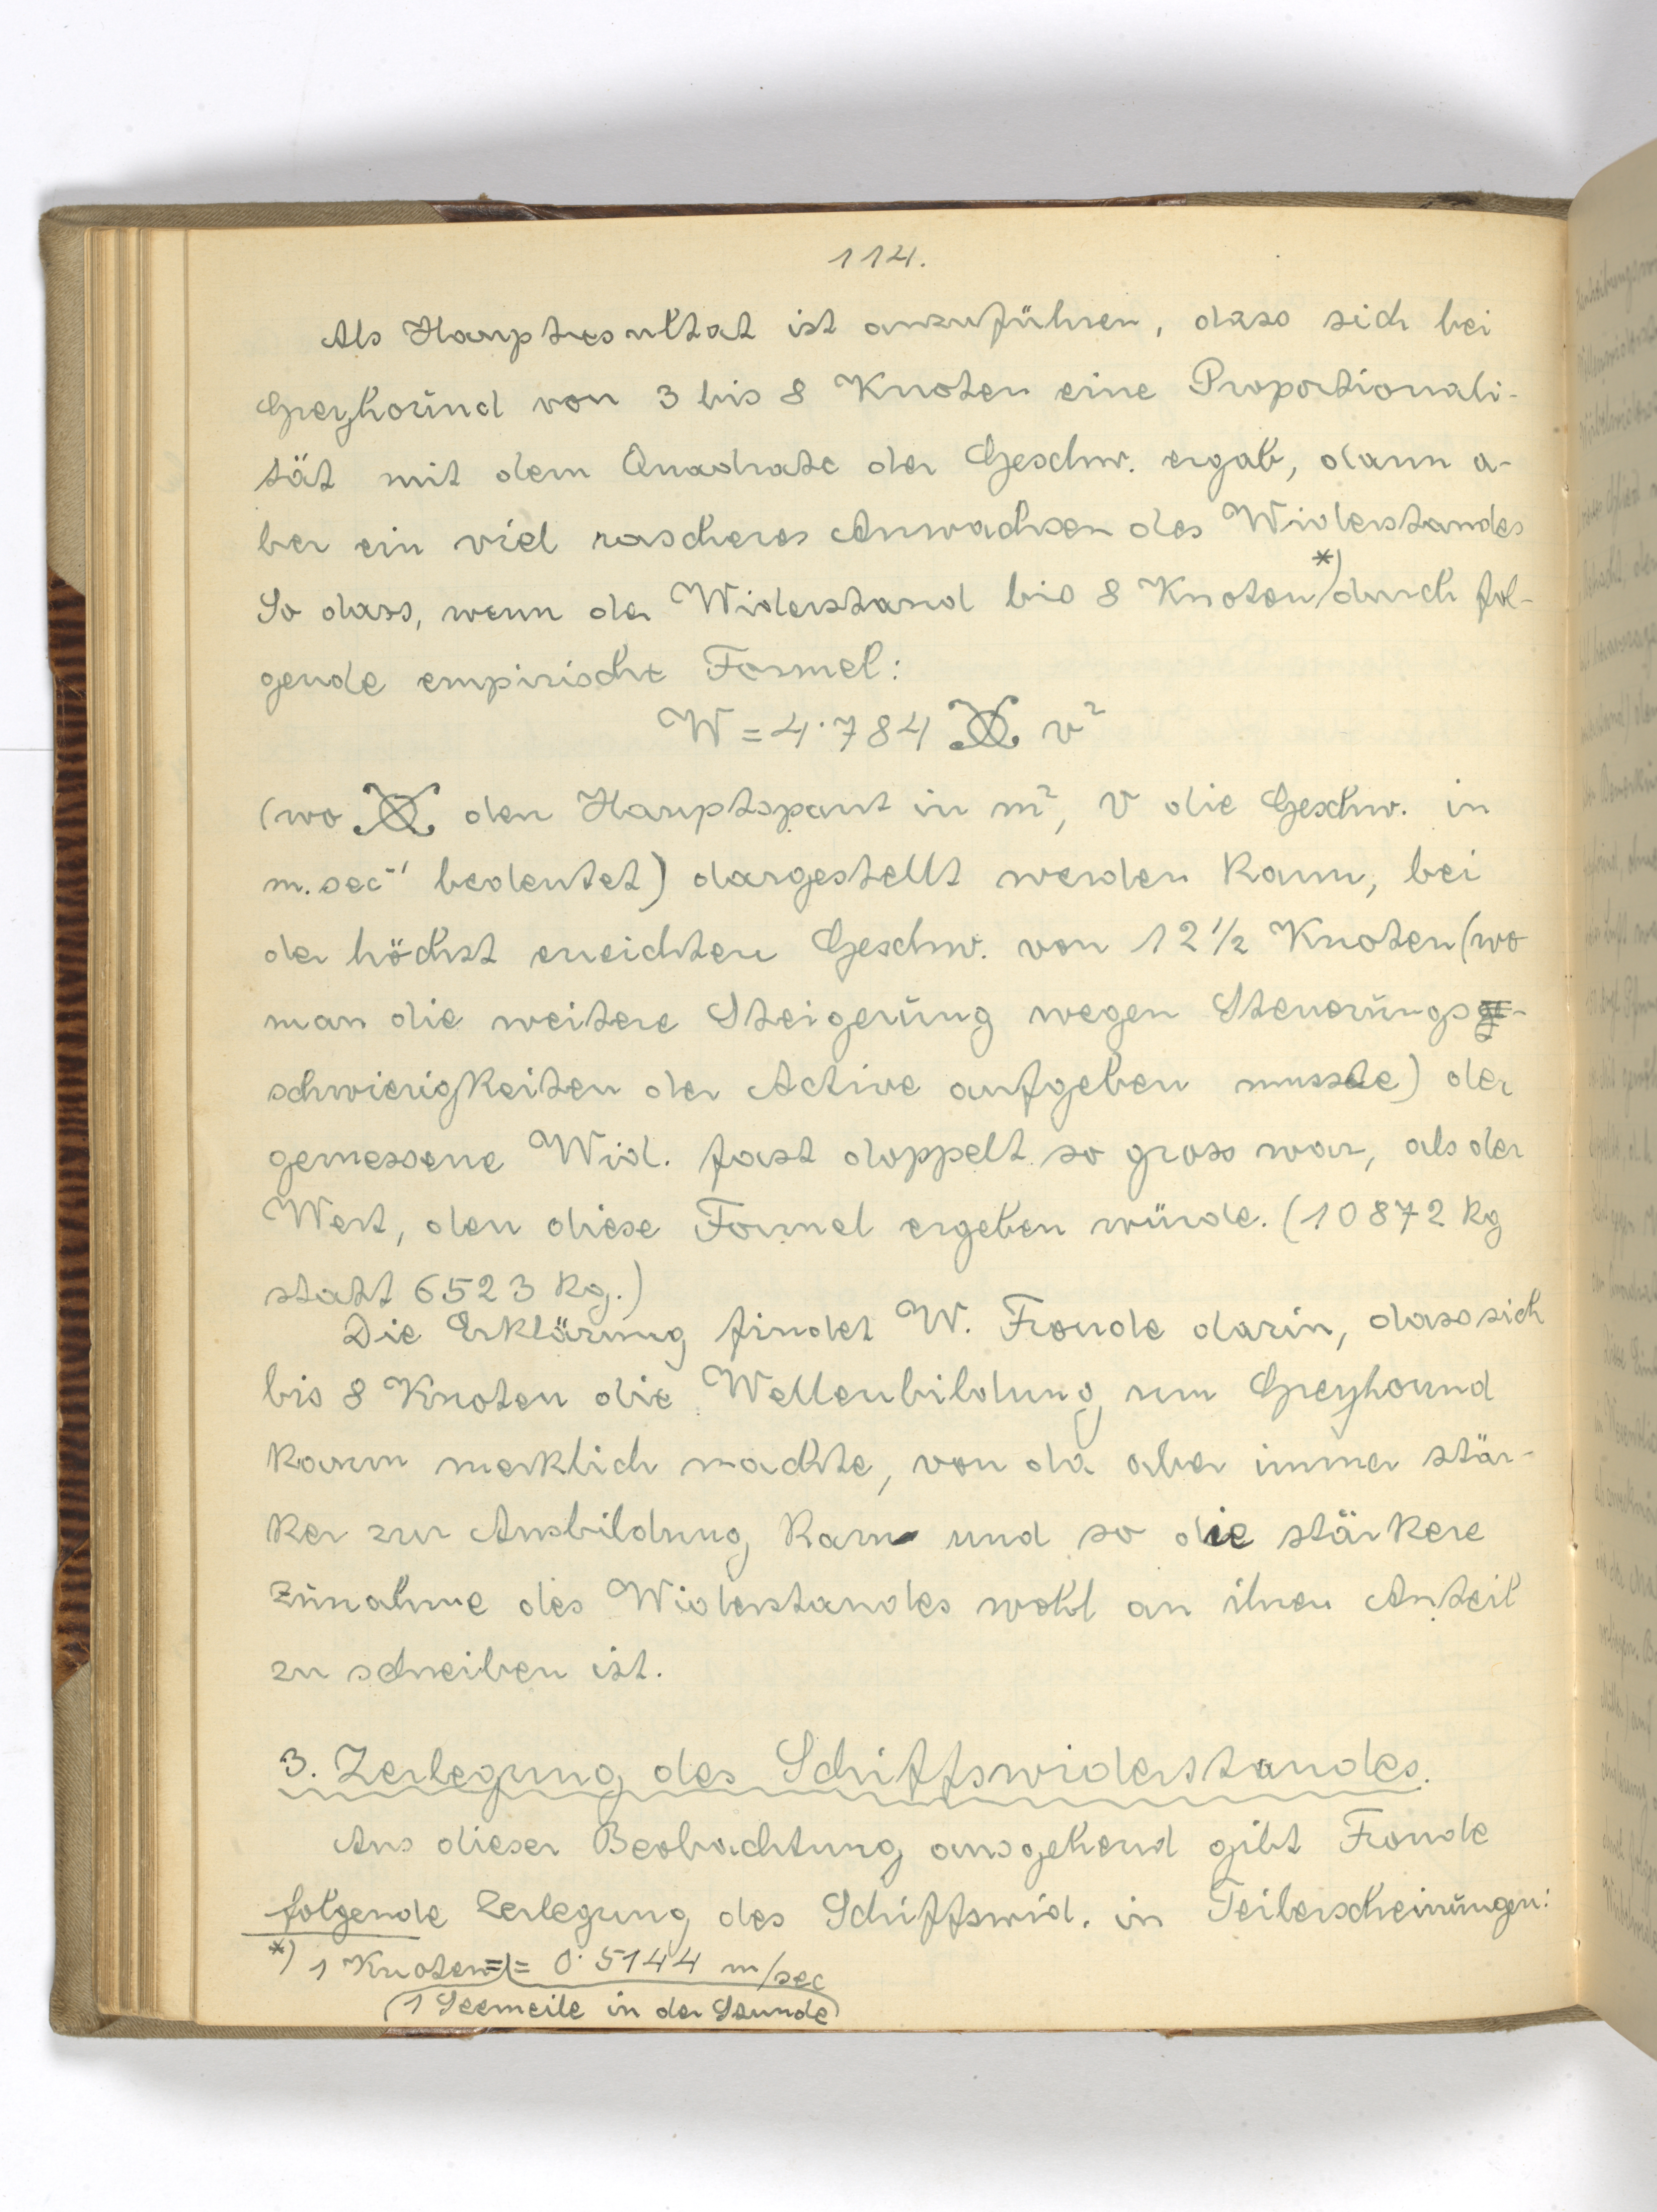 114.
Als Hauptresultat ist anzuführen, dass sich bei
Greyhound von 3 bis 8 Knoten eine Proportionali-
tät mit dem Quadrate der Geschw. ergab, dann a-
ber ein viel rascheres Anwachsen des Widerstandes
So dass, wenn der Widerstand bis 8 Knoten *) durch fol-
gende empirische Formel:
W = 4·784 ⦻ v²
(wo ⦻ den Hauptspant in m², v die Geschw. in
m. sec⁻¹ bedeutet) dargestellt werden kann, bei
der höchst erreichten Geschw. von 12 1/2 Knoten (wo
man die weitere Steigerung wegen Steuerungs-
schwierigkeiten der Active aufgeben musste) der
gemessene Wid. fast doppelt so gross war, als der
Wert, den diese Formel ergeben würde. (10872 kg
statt 6523 kg.)
Die Erklärung findet W. Froude darin, dass sich
bis 8 Knoten die Wellenbildung um Greyhound
kaum merklich machte, von da aber immer stär-
ker zur Ausbildung kam und so die stärkere
Zunahme des Widerstandes wohl an ihren Anteil
zu schreiben ist.
3. Zerlegung des Schiffswiderstandes.
Aus dieser Beobachtung ausgehend gibt Froude
folgende Zerlegung des Schiffswid. in Teilerscheinungen:
*) 1 Knoten = 0·5144 m/sec
(1 Seemeile in der Stunde)